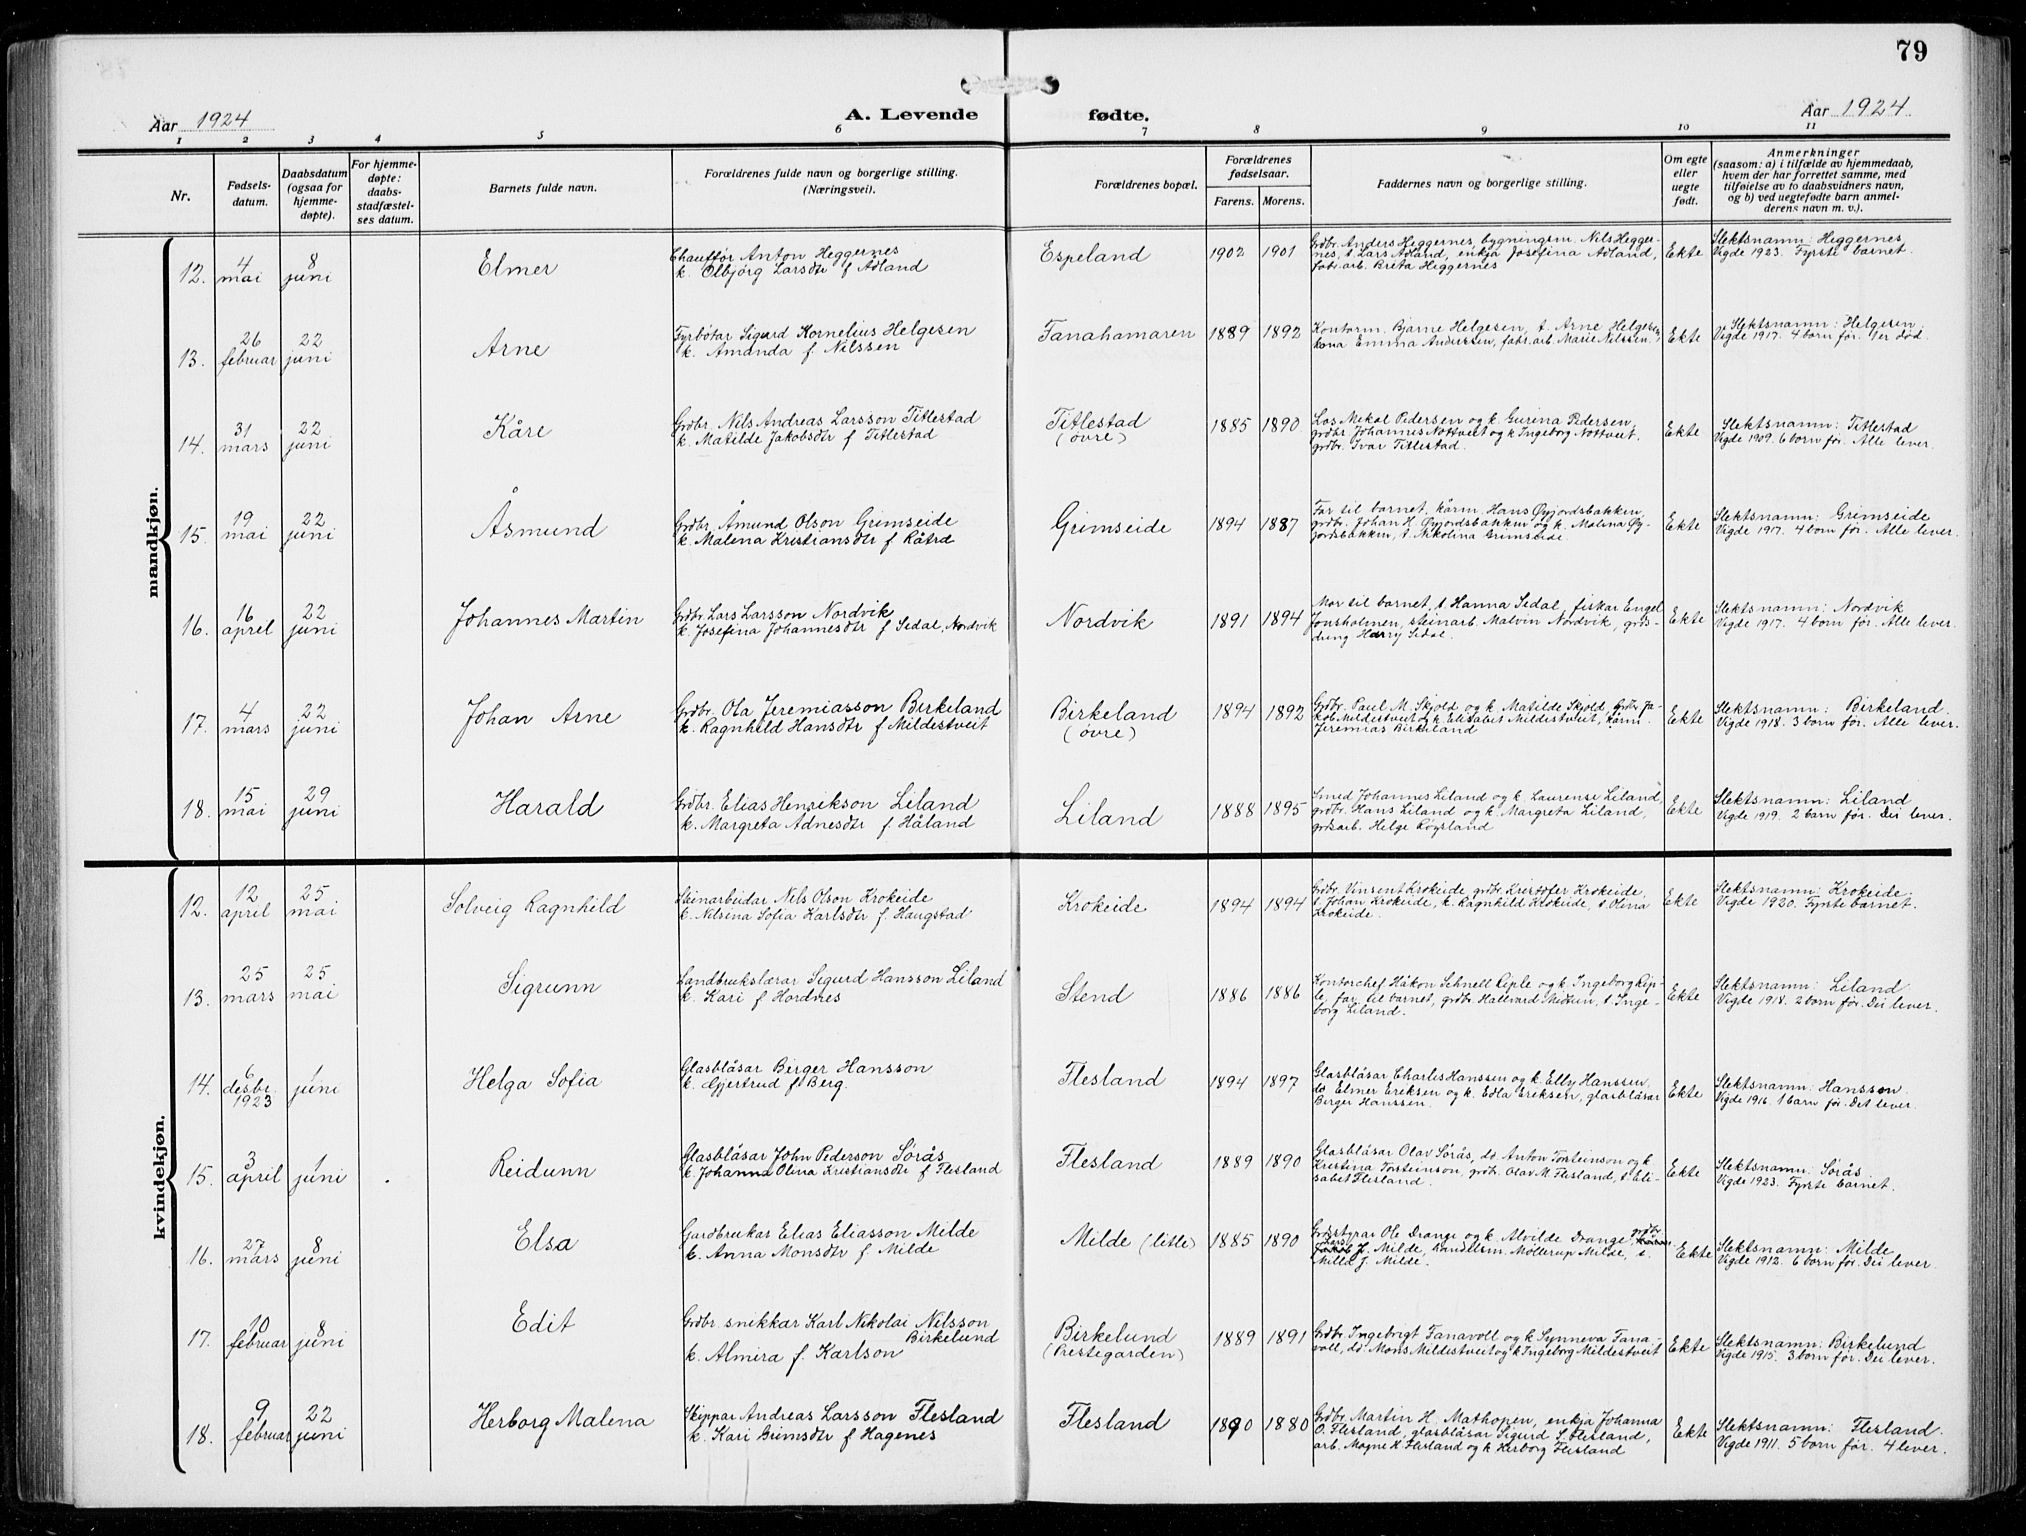 79
Aar 1924
A. Levende fødte.
Aar 1924.
1 2 3 4 5 6 7 8 9 10 11
Nr.
Fødsels-
datum.
Daabsdatum
(ogsaa for
hjemme-
døpte).
For hjemme-
døpte:
daabs-
stadfæstel-
ses datum.
Barnets fulde navn.
Forældrenes fulde navn og borgerlige stilling.
(Næringsvei).
Forældrenes bopæl.
Forældrenes
fødselsaar.
Farens. Morens.
Faddernes navn og borgerlige stilling.
Om egte
eller
uegte
født.
Anmerkninger
(saasom: a) i tilfælde av hjemmedaab,
hvem der har forrettet samme, med
tilføielse av to daabsvidners navn,
og b) ved uegtefødte barn anmel-
derens navn m. v.).
mandkjøn.
12.
4
mai
8
juni
Elmer
Chauffør Anton Heggernes
k. Olbjörg Larsdtr f Ådland
Espeland
1902 1901
Grdbr. Anders Heggernes, bygningsm. Nils Hegger-
nes, t. Lars Ådland, enkja Josefina Ådland,
fabr.arb. Brita Heggernes
Ekte
Slektsnamn: Heggernes
Vigde 1923. Fyrste barnet.
13.
26
februar
22
juni
Arne
Fyrbötar Sigurd Kornelius Helgesen
k. Amanda f. Nilssen
Fanahamaren
1889 1892
Kontorm. Bjarne Helgesen, t. Arne Helgesen,
kona Emma Anderssen, fabr.arb. Marie Nilssen.
Ekte
Slektsnamn: Helgesen.
Vigde 1917. 4 born før. 1 er død.
14.
31
mars
22
juni
Kåre
Grdbr. Nils Andreas Larsson Titlestad
k. Matilde Jakobsdtr f Titlestad
Titlestad
(övre)
1885 1890
Los Mikal Pedersen og k. Gurina Pedersen,
grdbr. Johannes Nottveit og k Ingeborg Nottveit.
grdbr. Ivar Titlestad.
Ekte
Slektsnamn: Titlestad
Vigde 1909. 6 born før. Alle lever.
15.
19
mai
22
juni
Åsmund
Grdbr. Åmund Olson Grimseide
k. Malena Kristiansdtr f Råtræ
Grimseide
1894 1887
Far til barnet, kårm. Hans Øyjordsbakken,
grdbr. Johan H. Øyjordsbakken og k. Malina Øy-
jordsbakken, t. Nikolina Grimseide.
Ekte
Slektsnamn: Grimseide
Vigde 1917. 4 born før. Alle lever.
16.
16
april
22
juni
Johannes Martin
Grdbr. Lars Larsson Nordvik
k. Josefina Johannesdtr f Sedal, Nordvik
Nordvik
1891 1894
Mor til barnet, t. Hanna Sedal, fiskar Engel
Jonsholmen, steinarb. Malvin Nordvik, grds-
dreng Harry Sedal.
Ekte
Slektsnamn: Nordvik
Vigde 1917. 4 born før. Alle lever.
17.
4
mars
22
juni
Johan Arne
Grdbr. Ola Jeremiasson Birkeland
k. Ragnhild Hansdtr f Mildestveit
Birkeland
(övre)
1894 1892
Grdbr. Paul M. Skjold og k. Matilde Skjold, grdbr Ja-
kob Mildestveit og k Elisabet Mildestveit, kårm.
Jeremias Birkeland
Ekte
Slektsnamn: Birkeland.
Vigde 1918. 3 born før. Alle lever.
18.
15
mai
29
juni
Harald
Grdbr. Elias Henrikson Liland
k. Margreta Adnesdtr f. Håland
Liland
1888 1895
Smed Johannes Liland og k. Laurense Liland,
grdbr. Hans Liland og k. Margreta Liland,
grdsarb. Helge Røysland
Ekte
Slektsnamn: Liland
Vigde 1919. 2 barn før. Dei lever.
kvindekjøn.
12.
12
april
25
mai
Solveig Ragnhild
Steinarbeidar Nils Olson Krokeide
k. Nilsina Sofia Karlsdtr f. Haugstad
Krokeide
1894 1894
Grdbr. Vinsent Krokeide, grdbr. Kristoffer Krokeide,
t. Johan Krokeide, k. Ragnhild Krokeide, t. Olina
Krokeide.
Ekte
Slektsnamn: Krokeide.
Vigde 1920. Fyrste barnet.
13.
25
mars
25
mai
Sigrunn
Landbrukslærar Sigurd Hansson Liland
k. Kari f Hordnes
Stend
1886 1886
Kontorchef Håkon Schnell Riple og k Ingeborg Rip-
le, far til barnet, grdbr Hallvard Midtun, t. Inge-
borg Liland.
Ekte
Slektsnamn: Liland
Vigde 1918. 2 born før. Dei lever.
14.
6
desbr.
1923
1
juni
Helga Sofia
Glasblåsar Birger Hansson
k. Gjertrud f Berg.
Flesland
1894 1897
Glasblåsar Charles Hanssen og k. Elly Hanssen,
do Elmer Eriksen og k. Edla Eriksen, glasblåsar
Birger Hanssen.
Ekte
Slektsnamn: Hansson.
Vigde 1916. 1 barn før. Det lever.
15.
3
april
1
juni
Reidunn
Glasblåsar John Pederson Sörås
k. Johanna Olina Kristiansdtr f Flesland
Flesland
1889 1890
Glasblåsar Olav Sörås, do Anton Torsteinson og k
Kristina Torsteinson, grdbr. Olav M. Flesland, t. Eli-
sabet Flesland.
Ekte
Slektsnamn: Sörås.
Vigde 1923. Fyrste barnet.
16.
27
mars
8
juni
Elsa
Gardbrukar Elias Eliasson Milde
k. Anna Monsdtr f Milde
Milde (litle)
1885 1890
Grdstypar Ole Drange og k. Alvilde Drange, grdbr.
Lars J. Milde, handlsm. Möllerup Milde, t.
Milla J. Milde.
Ekte
Slektsnamn: Milde
Vigde 1912. 6 born før. Dei lever.
17.
10
februar
8
juni
Edit
Grdbr. snikkar Karl Nikolai Nilsson
Birkelund
k. Almira f. Karlson
Birkelund
(Prestegarden)
1889 1891
Grdbr. Ingebrigt Fanavoll og k Synneva Fana-
voll, do Mons Mildestveit og k Ingeborg Mildestveit
Ekte
Slektsnamn: Birkelund
Vigde 1915. 3 born før. Dei lever.
18.
9
februar
22
juni
Herborg Malena
Skippar Andreas Larsson Flesland
k. Kari Grimsdtr f Hagenes
Flesland
1890 1880
Grdbr. Martin H. Mathopen, enkja Johanna
O. Flesland, glasblåsar Sigurd S. Flesland,
arb. Mogne K. Flesland og k Herborg Flesland
Ekte
Slektsnamn: Flesland.
Vigde 1911. 5 born før. 4 lever.